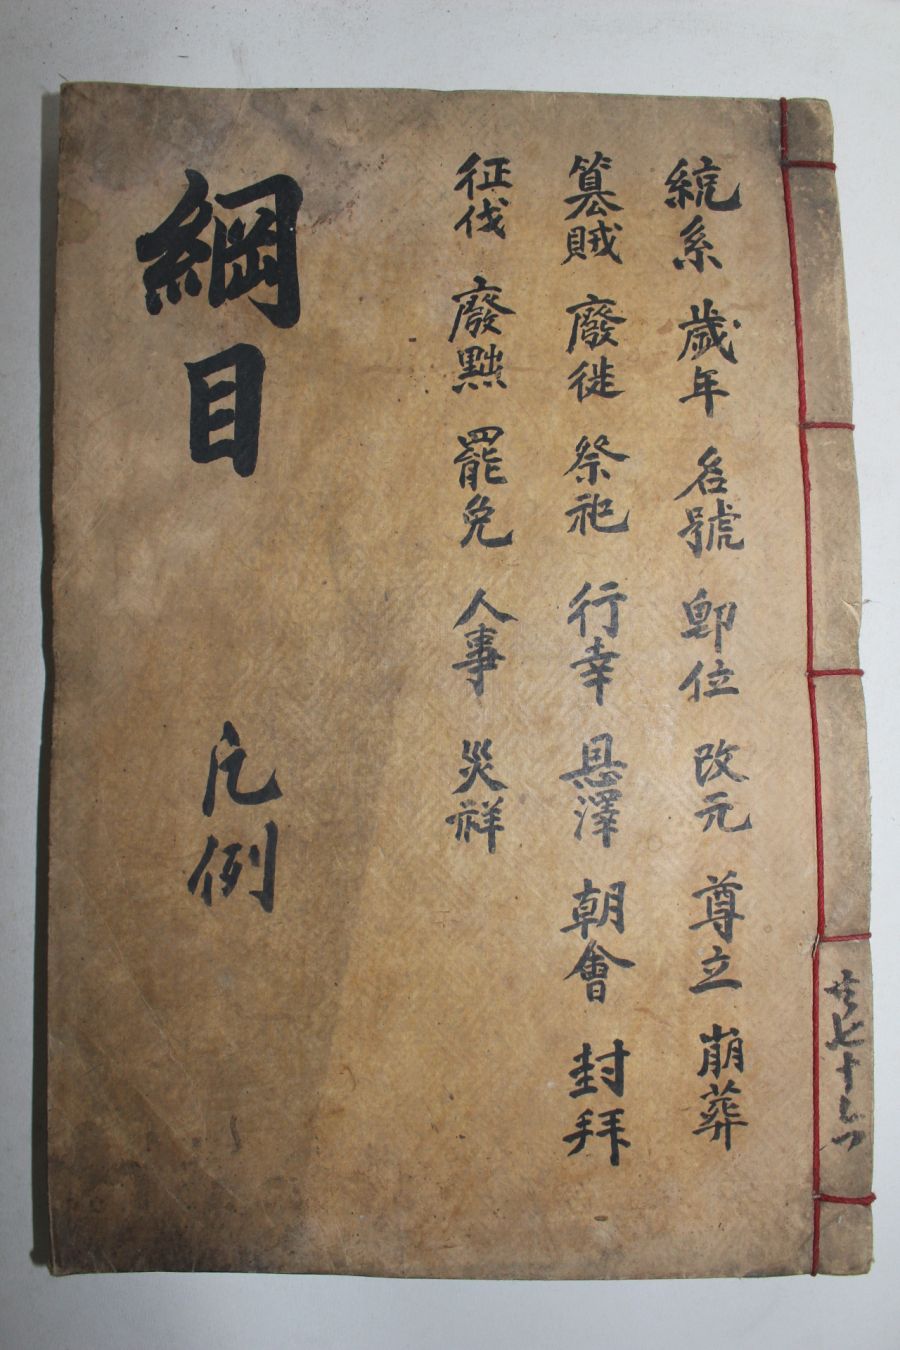 共七十
統系 歲年 名號 卽位 改元 尊立 崩葬
篡賊 廢徙 祭祀 行幸 恩澤 朝會 封拜
征伐 廢黜 罷免 人事 災祥
綱目 凡例